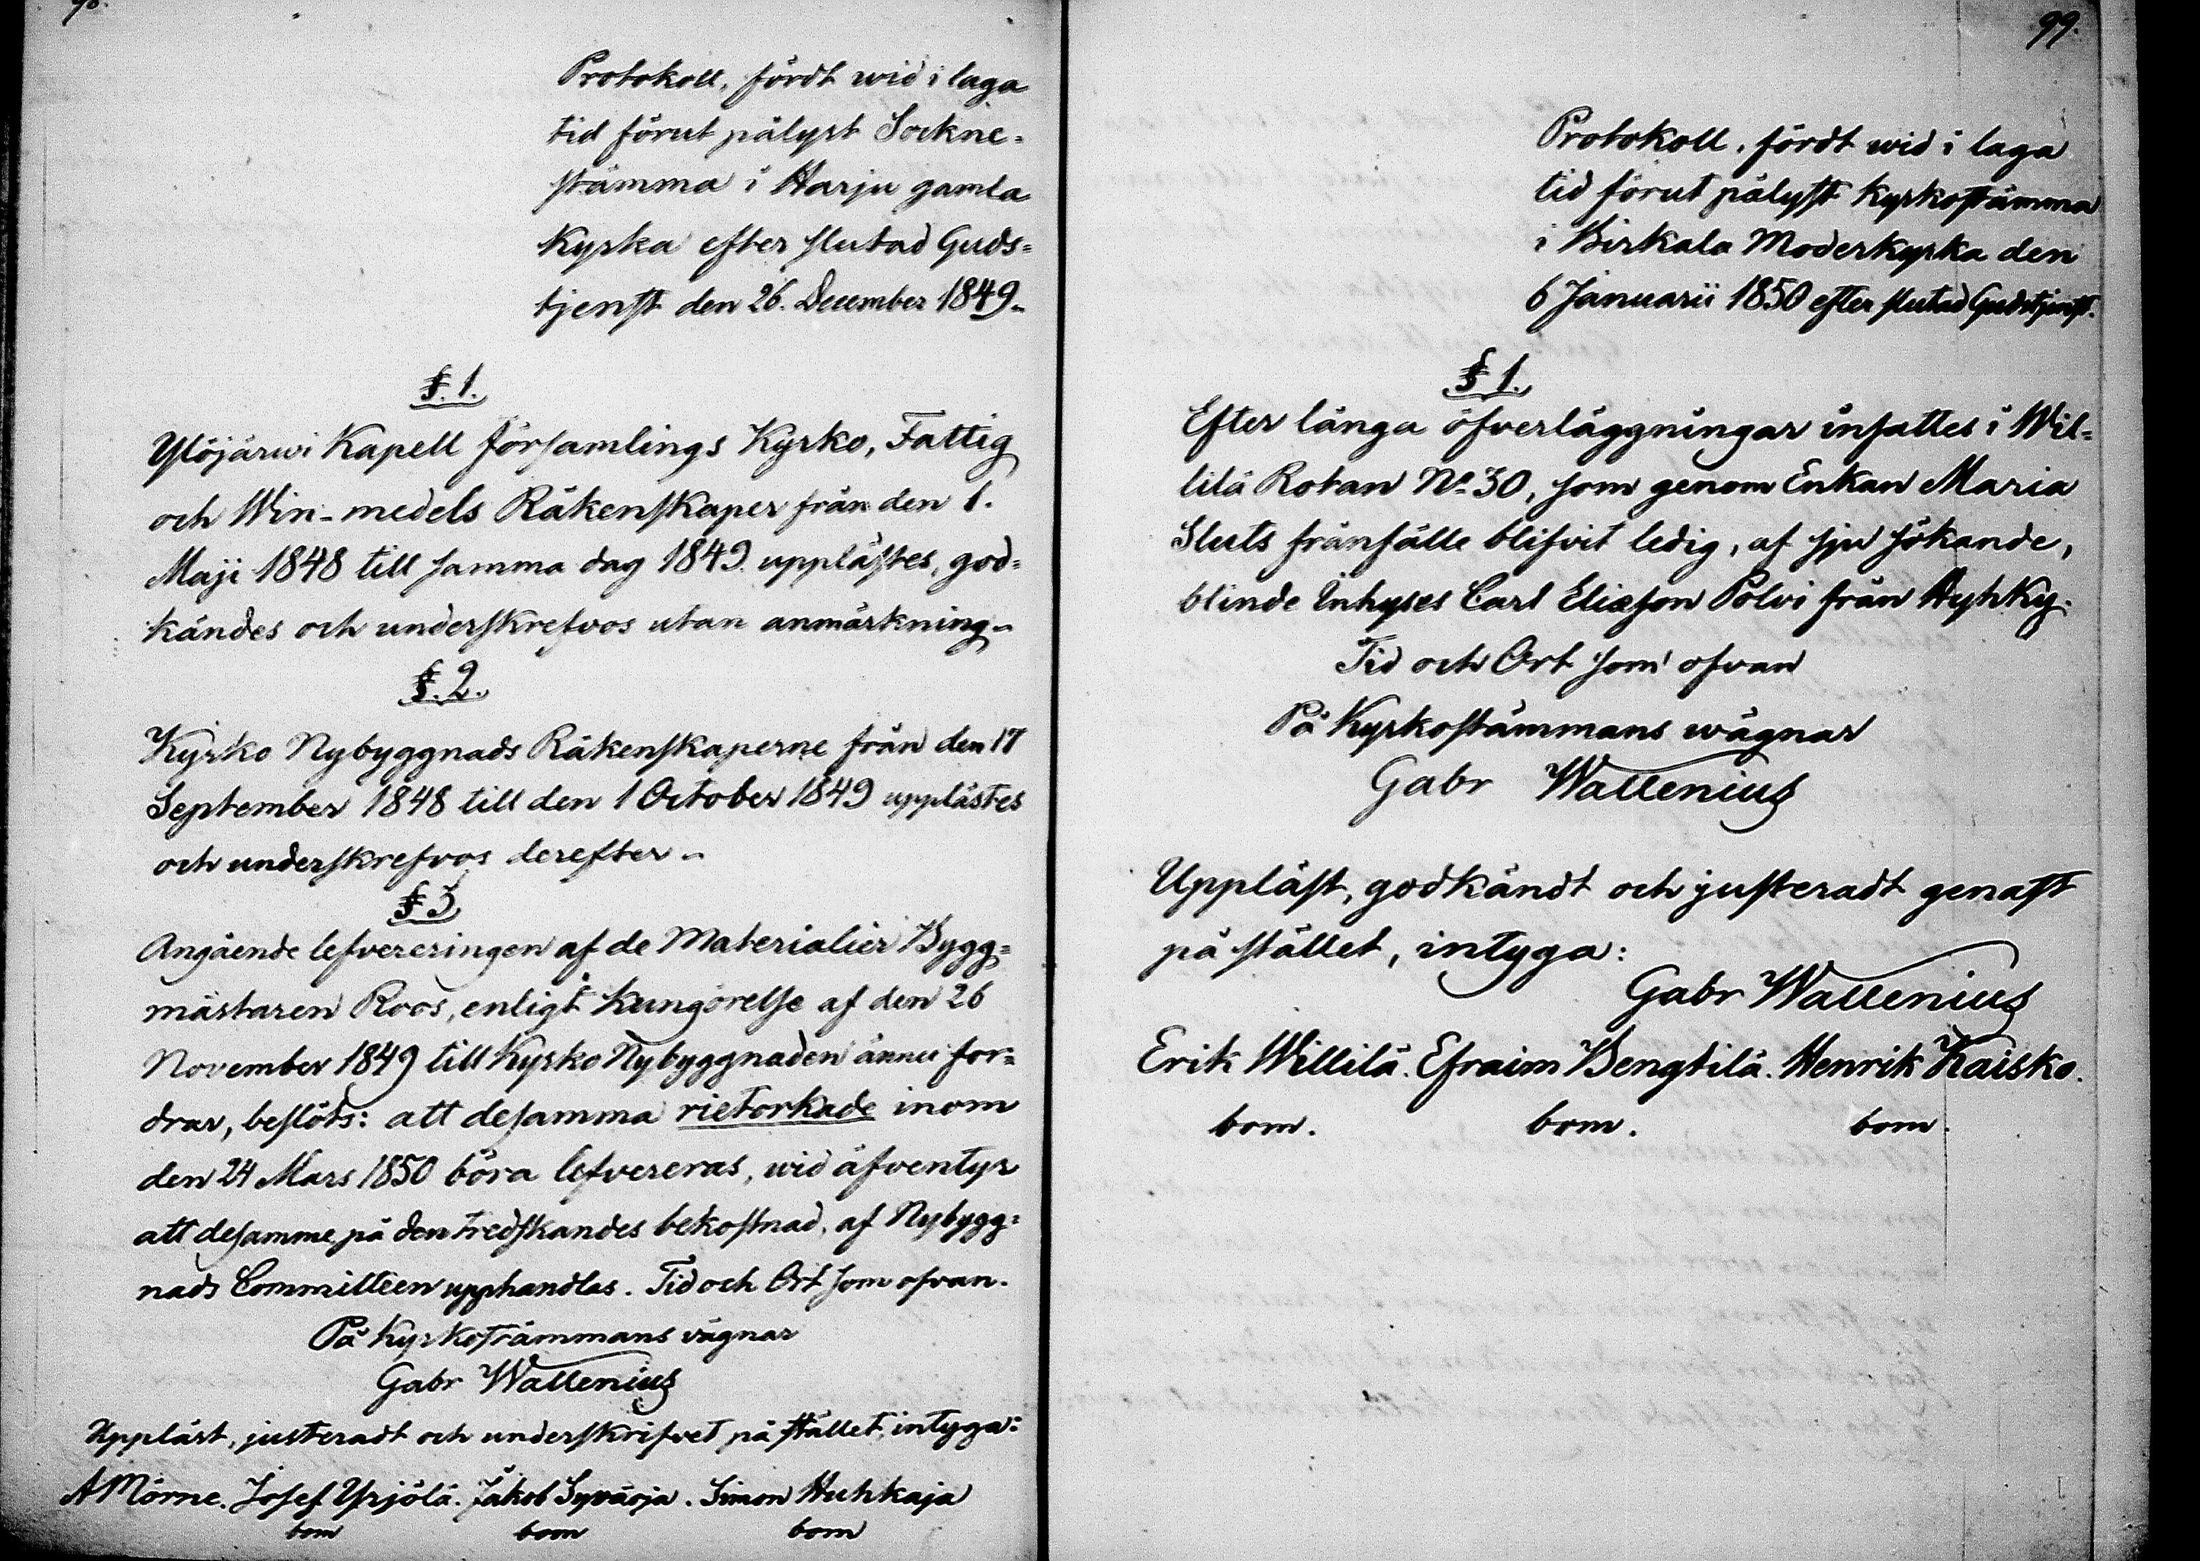 98.
Protokoll, fördt wid i laga
tid förut pålyst Sockne-
stämma i Harju gamla
Kyrka efter slutad Guds-
tjenst den 26. December 1849.
§. 1.
Ylöjärwi Kapell församlings Kyrko, Fattig
och Win-medels Räkenskaper från den 1.
Maji 1848 till samma dag 1849 upplästes, god-
kändes och underskrefvos utan anmärkning.
§. 2.
Kyrko Nybyggnads Räkenskaperne från den 17
September 1848 till den 1 October 1849 upplästes
och underskrefvos derefter.
§ 3
Angående lefvereringen af de Materialier Bygg-
mästaren Roos, enligt kungörelse af den 26
November 1849 till Kyrko Nybyggnaden ännu for-
drar, beslöts: att desamma rietorkade inom
den 24 Mars 1850 böra lefvereras, wid äfventyr
att desamme på den tredskandes bekostnad, af Nybygg-
nads Committéen upphandlas. Tid och Ort som ofvan.
På Kyrkostämmans vägnar
Gabr Wallenius
Uppläst, justeradt och underskrifvet på stället, intyga:
A Mörne. Josef Yrjölä. Jakob Syväoja. Simon Huhkaja
bom bom bom
99.
Protokoll, fördt wid i laga
tid förut pålyst Kyrkostämma
i Birkala Moderkyrka den
6 Januarii 1850 efter slutad Gudstjenst.
§ 1.
Efter långa öfverläggningar insattes i Wil-
lilä Rotan No 30, som genom Enkan Maria
Sluts frånfälle blifvit ledig, af sju sökande,
blinde Inhyses Carl Eliæson Polvi från Hyhky.
Tid och Ort som ofvan
På Kyrkostämmans wägnar
Gabr Wallenius
Uppläst, godkändt och justeradt genast
på stället, intyga:
Gabr Wallenius
Erik Willilä. Efraim Bengtilä. Henrik Kaisko.
bom. bom. bom.